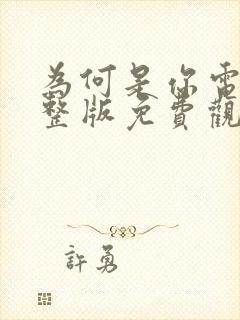 為何是你電
整版免費觀
許勇